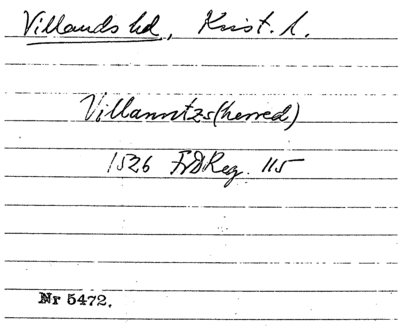 Villands hd, Krist. l.
Villanntzs(herred)
1526 FrDReg. 115
Nr 5472.